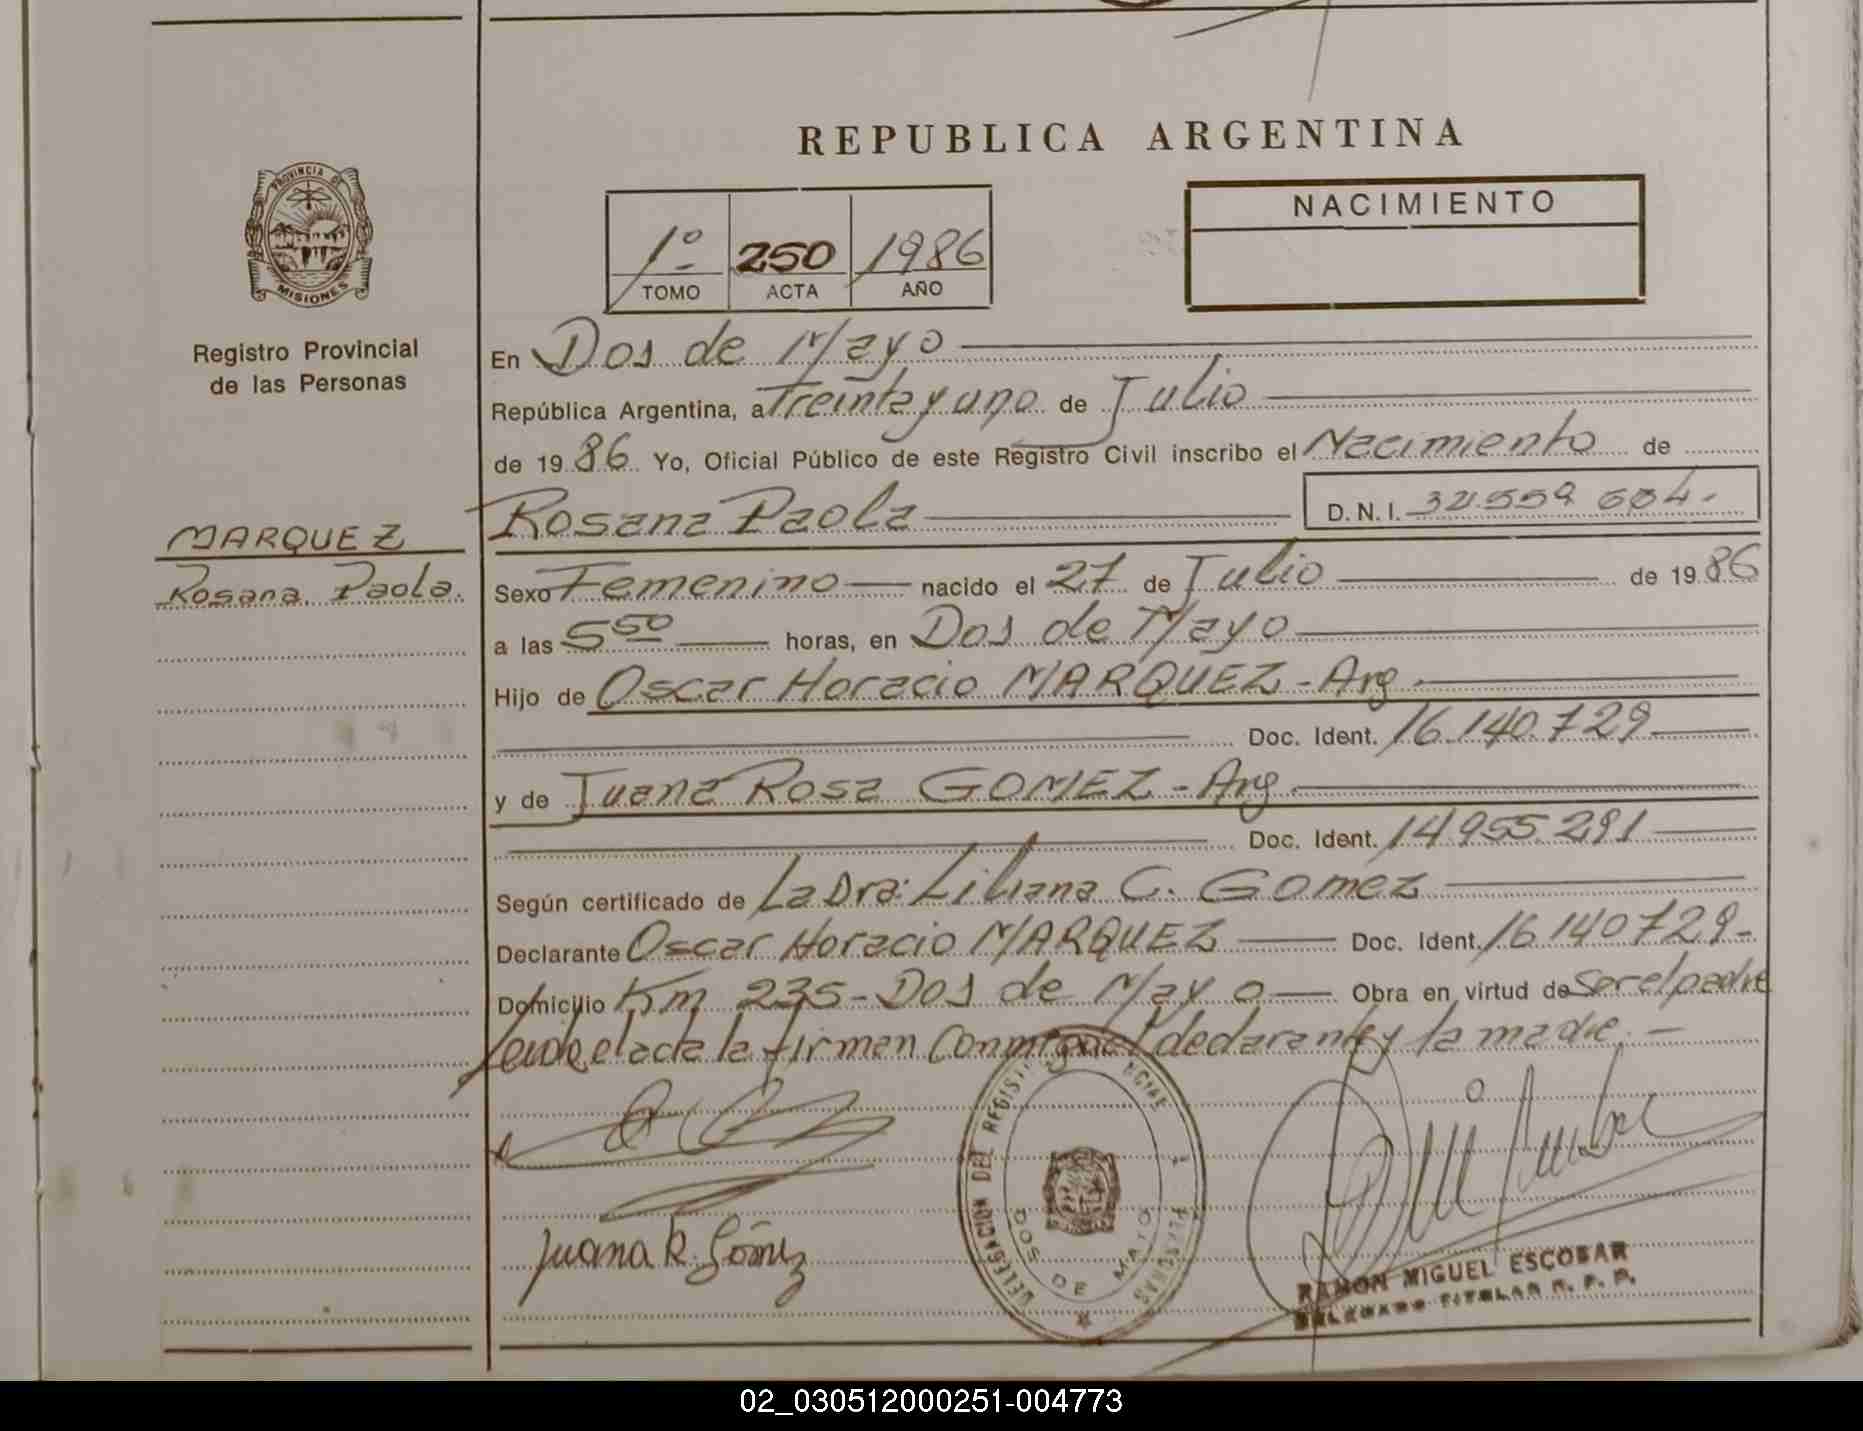 REPUBLICA ARGENTINA
PROVINCIA DE
MISIONES
Registro Provincial
de las Personas
MARQUEZ
Rosana Paola.
1º TOMO 250 ACTA 1986 AÑO
NACIMIENTO
En Dos de Mayo
República Argentina, a Treinta y uno de Julio
de 1986 Yo, Oficial Público de este Registro Civil inscribo el Nacimiento de
Rosana Paola D.N.I.
Sexo Femenino nacido el 27 de Julio de 1986
a las 5 50 horas, en Dos de Mayo
Hijo de Oscar Horacio MARQUEZ - Arg.
Doc. Ident. 16.140.729
y de Juana Rosa GOMEZ - Arg
Doc. Ident. 14.955.291
Según certificado de La Dra: Liliana C. Gomez
Declarante Oscar Horacio MARQUEZ Doc. Ident. 16.140729-
Domicilio Km 235 - Dos de Mayo Obra en virtud de Ser el padre
Leida el acta la firman Conmigo el declarante y la madre. -
DELEGACION DEL REGISTRO
DOS DE MAYO
Juana R. Gómez
RAMON MIGUEL ESCOBAR
DELEGADO TITULAR R. P. P.
02_030512000251-004773